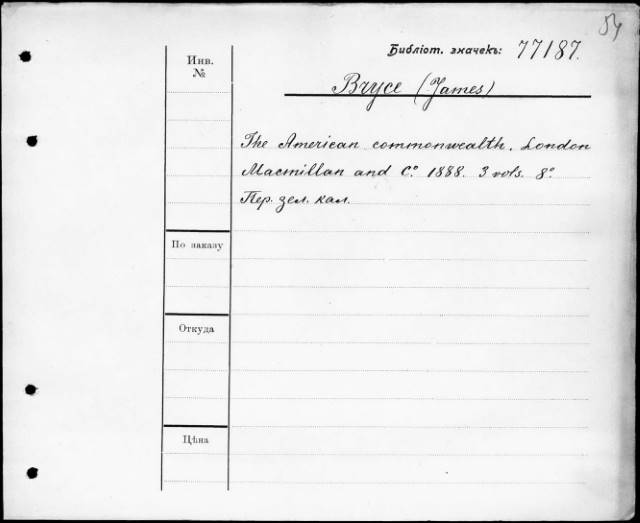 54
Библіот. значекъ: 77187.
Инв.
№
Bryce (James)
The American commonwealth. London
Macmillan and Cº 1888. 3 vols. 8º
Пер. зел. кал.
По заказу
Откуда
Цѣна